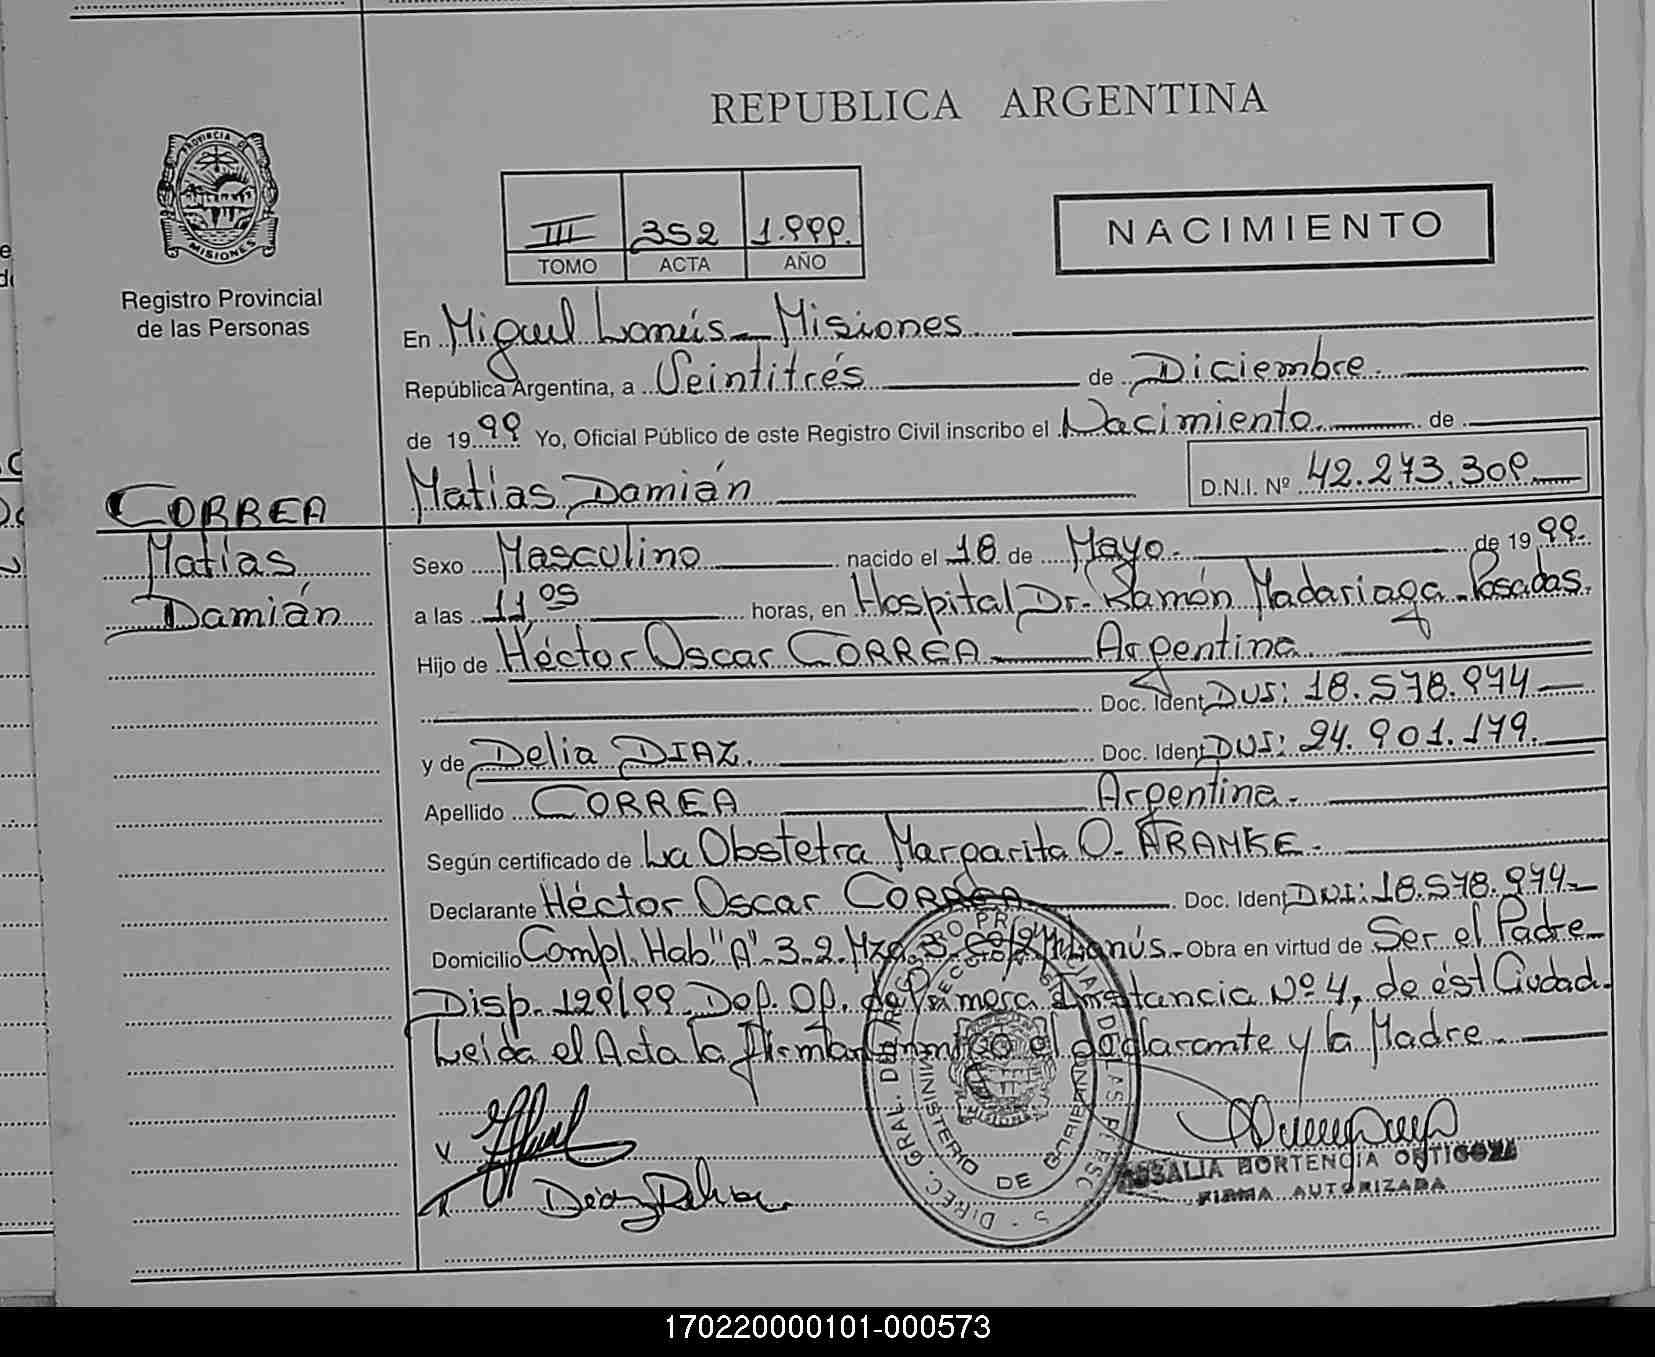 REPUBLICA ARGENTINA
PROVINCIA DE
MISIONES
Registro Provincial
de las Personas
III 352 1.999.
TOMO ACTA AÑO
NACIMIENTO
En Miguel Lanús - Misiones
República Argentina, a Veintitrés de Diciembre.
de 1999 Yo, Oficial Público de este Registro Civil inscribo el Nacimiento de
Matías Damián D.N.I. Nº 42.273.309
CORREA
Matías
Damián
Sexo Masculino nacido el 18 de Mayo. de 1999.
a las 11,05 horas, en Hospital Dr. Ramón Madariaga - Posadas.
Hijo de Héctor Oscar CORREA Argentina
Doc. Ident DNI: 18.578.974
y de Delia DIAZ. Doc. Ident DNI: 24.901.179.
Apellido CORREA Argentina.
Según certificado de La Obstetra Margarita O. FRANKE.
Declarante Héctor Oscar CORREA Doc. Ident DNI: 18.578.974
Domicilio Compl. Hab "A" 3.2. Mza. 3 Lanús. Obra en virtud de Ser el Padre
Disp. 129/99. Def. Of. de Primera Instancia Nº 4, de ést Ciudad.
Leída el Acta la Firman conmigo el declarante y la Madre.
DIREC. GRAL. DEL REGISTRO PROVINCIAL DE LAS PERSONAS
MINISTERIO DE GOBIERNO
Diaz Delia
ROSALIA HORTENCIA ORTIGOZA
FIRMA AUTORIZADA
170220000101-000573